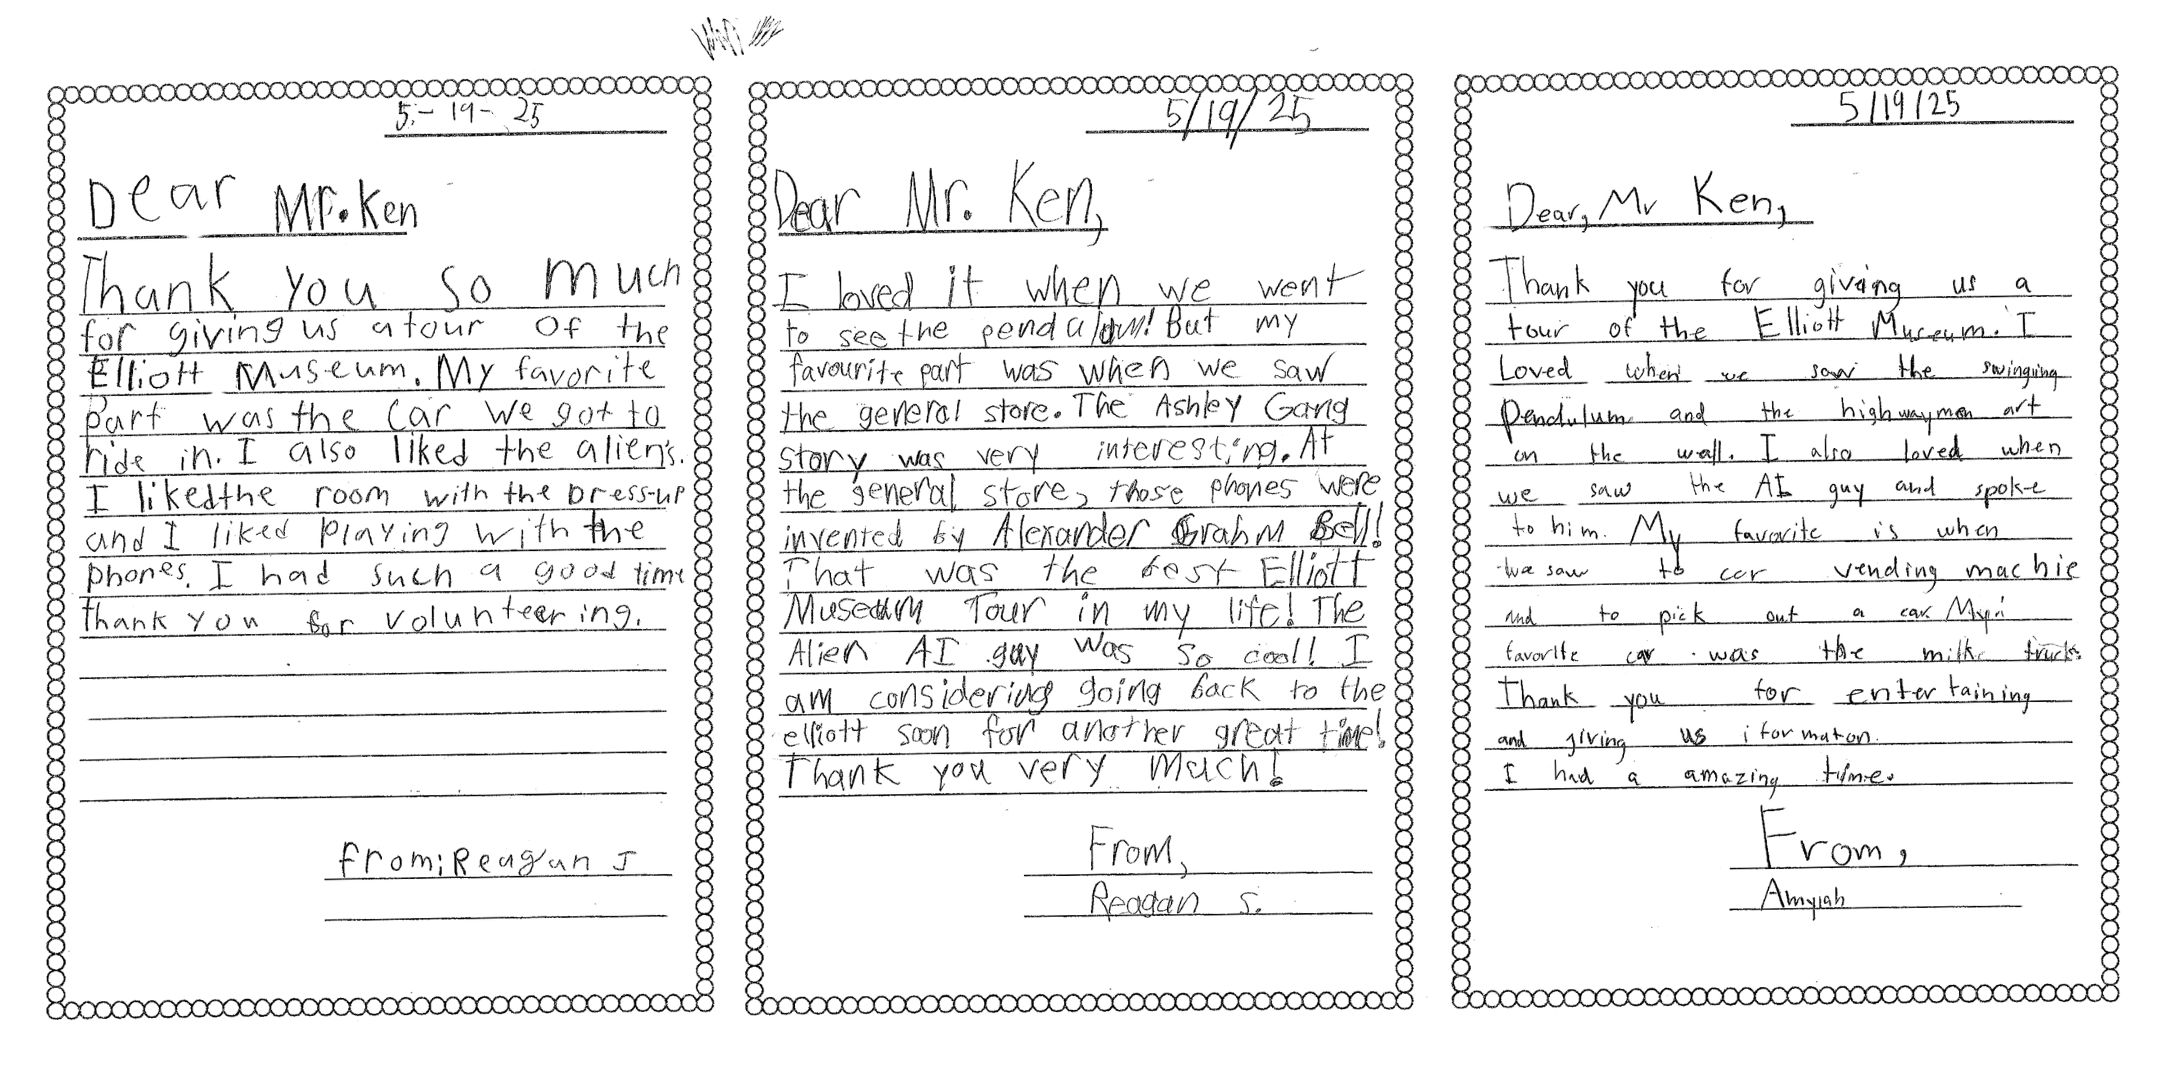 5-19-25
Dear Mr. Ken
Thank you so much
for giving us a tour of the
Elliott Museum. My favorite
part was the car we got to
ride in. I also liked the aliens.
I liked the room with the Dress-up
and I liked playing with the
phones. I had such a good time
thank you for volunteering.
from; Reagan J
5/19/25
Dear Mr. Ken,
I loved it when we went
to see the pendalum! But my
favourite part was when we saw
the general store. The Ashley Gang
story was very interesting. At
the general store, those phones were
invented by Alexander Grahm Bell!
That was the best Elliott
Museum Tour in my life! The
Alien AI guy was so cool! I
am considering going back to the
elliott soon for another great time!
Thank you very much!
From,
Reagan S.
5/19/25
Dear, Mr Ken,
Thank you for giving us a
tour of the Elliott Museum. I
Loved when we saw the swinging
Pendulum and the highwaymen art
on the wall. I also loved when
we saw the AI guy and spoke
to him. My favorite is when
we saw to car vending machie
and to pick out a car.
favorite car was the milk truck.
Thank you for entertaining
and giving us iformaton.
I had a amazing time.
From,
Amyiah